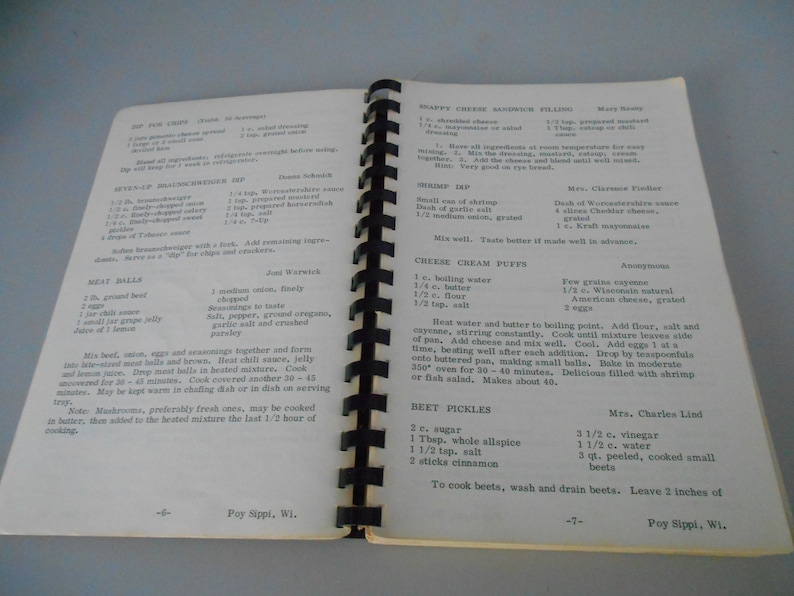 DIP FOR CHIPS (Yield: 50 Servings)
2 jars pimento cheese spread 1 c. salad dressing
1 large or 2 small cans 2 tsp. grated onion
deviled ham
Blend all ingredients; refrigerate overnight before using.
Dip will keep for 1 week in refrigerator.
SEVEN-UP BRAUNSCHWEIGER DIP Donna Schmidt
1/2 lb. braunschweiger 1/4 tsp. Worcestershire sauce
1/2 c. finely-chopped onion 1 tsp. prepared mustard
1/2 c. finely-chopped celery 2 tsp. prepared horseradish
1/4 c. finely-chopped sweet 1/4 tsp. salt
pickles 1/4 c. 7-Up
4 drops of Tabasco sauce
Soften braunschweiger with a fork. Add remaining ingre-
dients. Serve as a "dip" for chips and crackers.
MEAT BALLS Joni Warwick
2 lb. ground beef 1 medium onion, finely
2 eggs chopped
1 jar chili sauce Seasonings to taste
1 small jar grape jelly Salt, pepper, ground oregano,
Juice of 1 lemon garlic salt and crushed
parsley
Mix beef, onion, eggs and seasonings together and form
into bite-sized meat balls and brown. Heat chili sauce, jelly
and lemon juice. Drop meat balls in heated mixture. Cook
uncovered for 30 - 45 minutes. Cook covered another 30 - 45
minutes. May be kept warm in chafing dish or in dish on serving
tray.
Note: Mushrooms, preferably fresh ones, may be cooked
in butter, then added to the heated mixture the last 1/2 hour of
cooking.
-6- Poy Sippi, Wi.
SNAPPY CHEESE SANDWICH FILLING Mary
1 c. shredded cheese 1/2 tsp. prepared mustard
1/4 c. mayonnaise or salad 1 Tbsp. catsup or chili
dressing sauce
1. Have all ingredients at room temperature for easy
mixing. 2. Mix the dressing, mustard, catsup, cream
together. 3. Add the cheese and blend until well mixed.
Hint: Very good on rye bread.
SHRIMP DIP Mrs. Clarence Fiedler
Small can of shrimp Dash of Worcestershire sauce
Dash of garlic salt 4 slices Cheddar cheese,
1/2 medium onion, grated grated
1 c. Kraft mayonnaise
Mix well. Taste better if made well in advance.
CHEESE CREAM PUFFS Anonymous
1 c. boiling water Few grains cayenne
1/4 c. butter 1/2 c. Wisconsin natural
1/2 c. flour American cheese, grated
1/2 tsp. salt 2 eggs
Heat water and butter to boiling point. Add flour, salt and
cayenne, stirring constantly. Cook until mixture leaves side
of pan. Add cheese and mix well. Cool. Add eggs 1 at a
time, beating well after each addition. Drop by teaspoonfuls
onto buttered pan, making small balls. Bake in moderate
350° oven for 30 - 40 minutes. Delicious filled with shrimp
or fish salad. Makes about 40.
BEET PICKLES Mrs. Charles Lind
2 c. sugar 3 1/2 c. vinegar
1 Tbsp. whole allspice 1 1/2 c. water
1 1/2 tsp. salt 3 qt. peeled, cooked small
2 sticks cinnamon beets
To cook beets, wash and drain beets. Leave 2 inches of
-7- Poy Sippi, Wi.